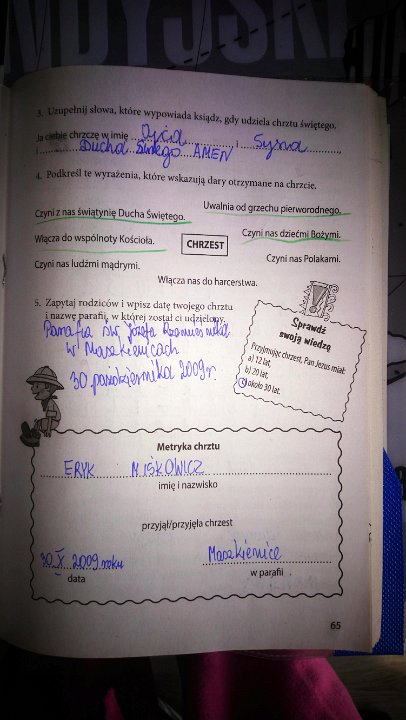 3. Uzupełnij słowa, które wypowiada ksiądz, gdy udziela chrztu świętego.
Ja ciebie chrzczę w imię Ojca i Syna
i Ducha Świętego AMEN
4. Podkreśl te wyrażenia, które wskazują dary otrzymane na chrzcie.
Uwalnia od grzechu pierworodnego.
Czyni z nas świątynię Ducha Świętego.
Czyni nas dziećmi Bożymi.
Włącza do wspólnoty Kościoła.
CHRZEST
Czyni nas ludźmi mądrymi.
Czyni nas Polakami.
Włącza nas do harcerstwa.
5. Zapytaj rodziców i wpisz datę twojego chrztu
i nazwę parafii, w której został ci udzielony.
Parafia św. Józefa Rzemieślnika
w Maszkienicach
30 października 2009 r.
Sprawdź
swoją wiedzę
Przyjmując chrzest, Pan Jezus miał:
a) 12 lat,
b) 20 lat,
c) około 30 lat.
Metryka chrztu
ERYK MIŚKOWICZ
imię i nazwisko
przyjął/przyjęła chrzest
30 X 2009 roku
Maszkienice
data
w parafii
65